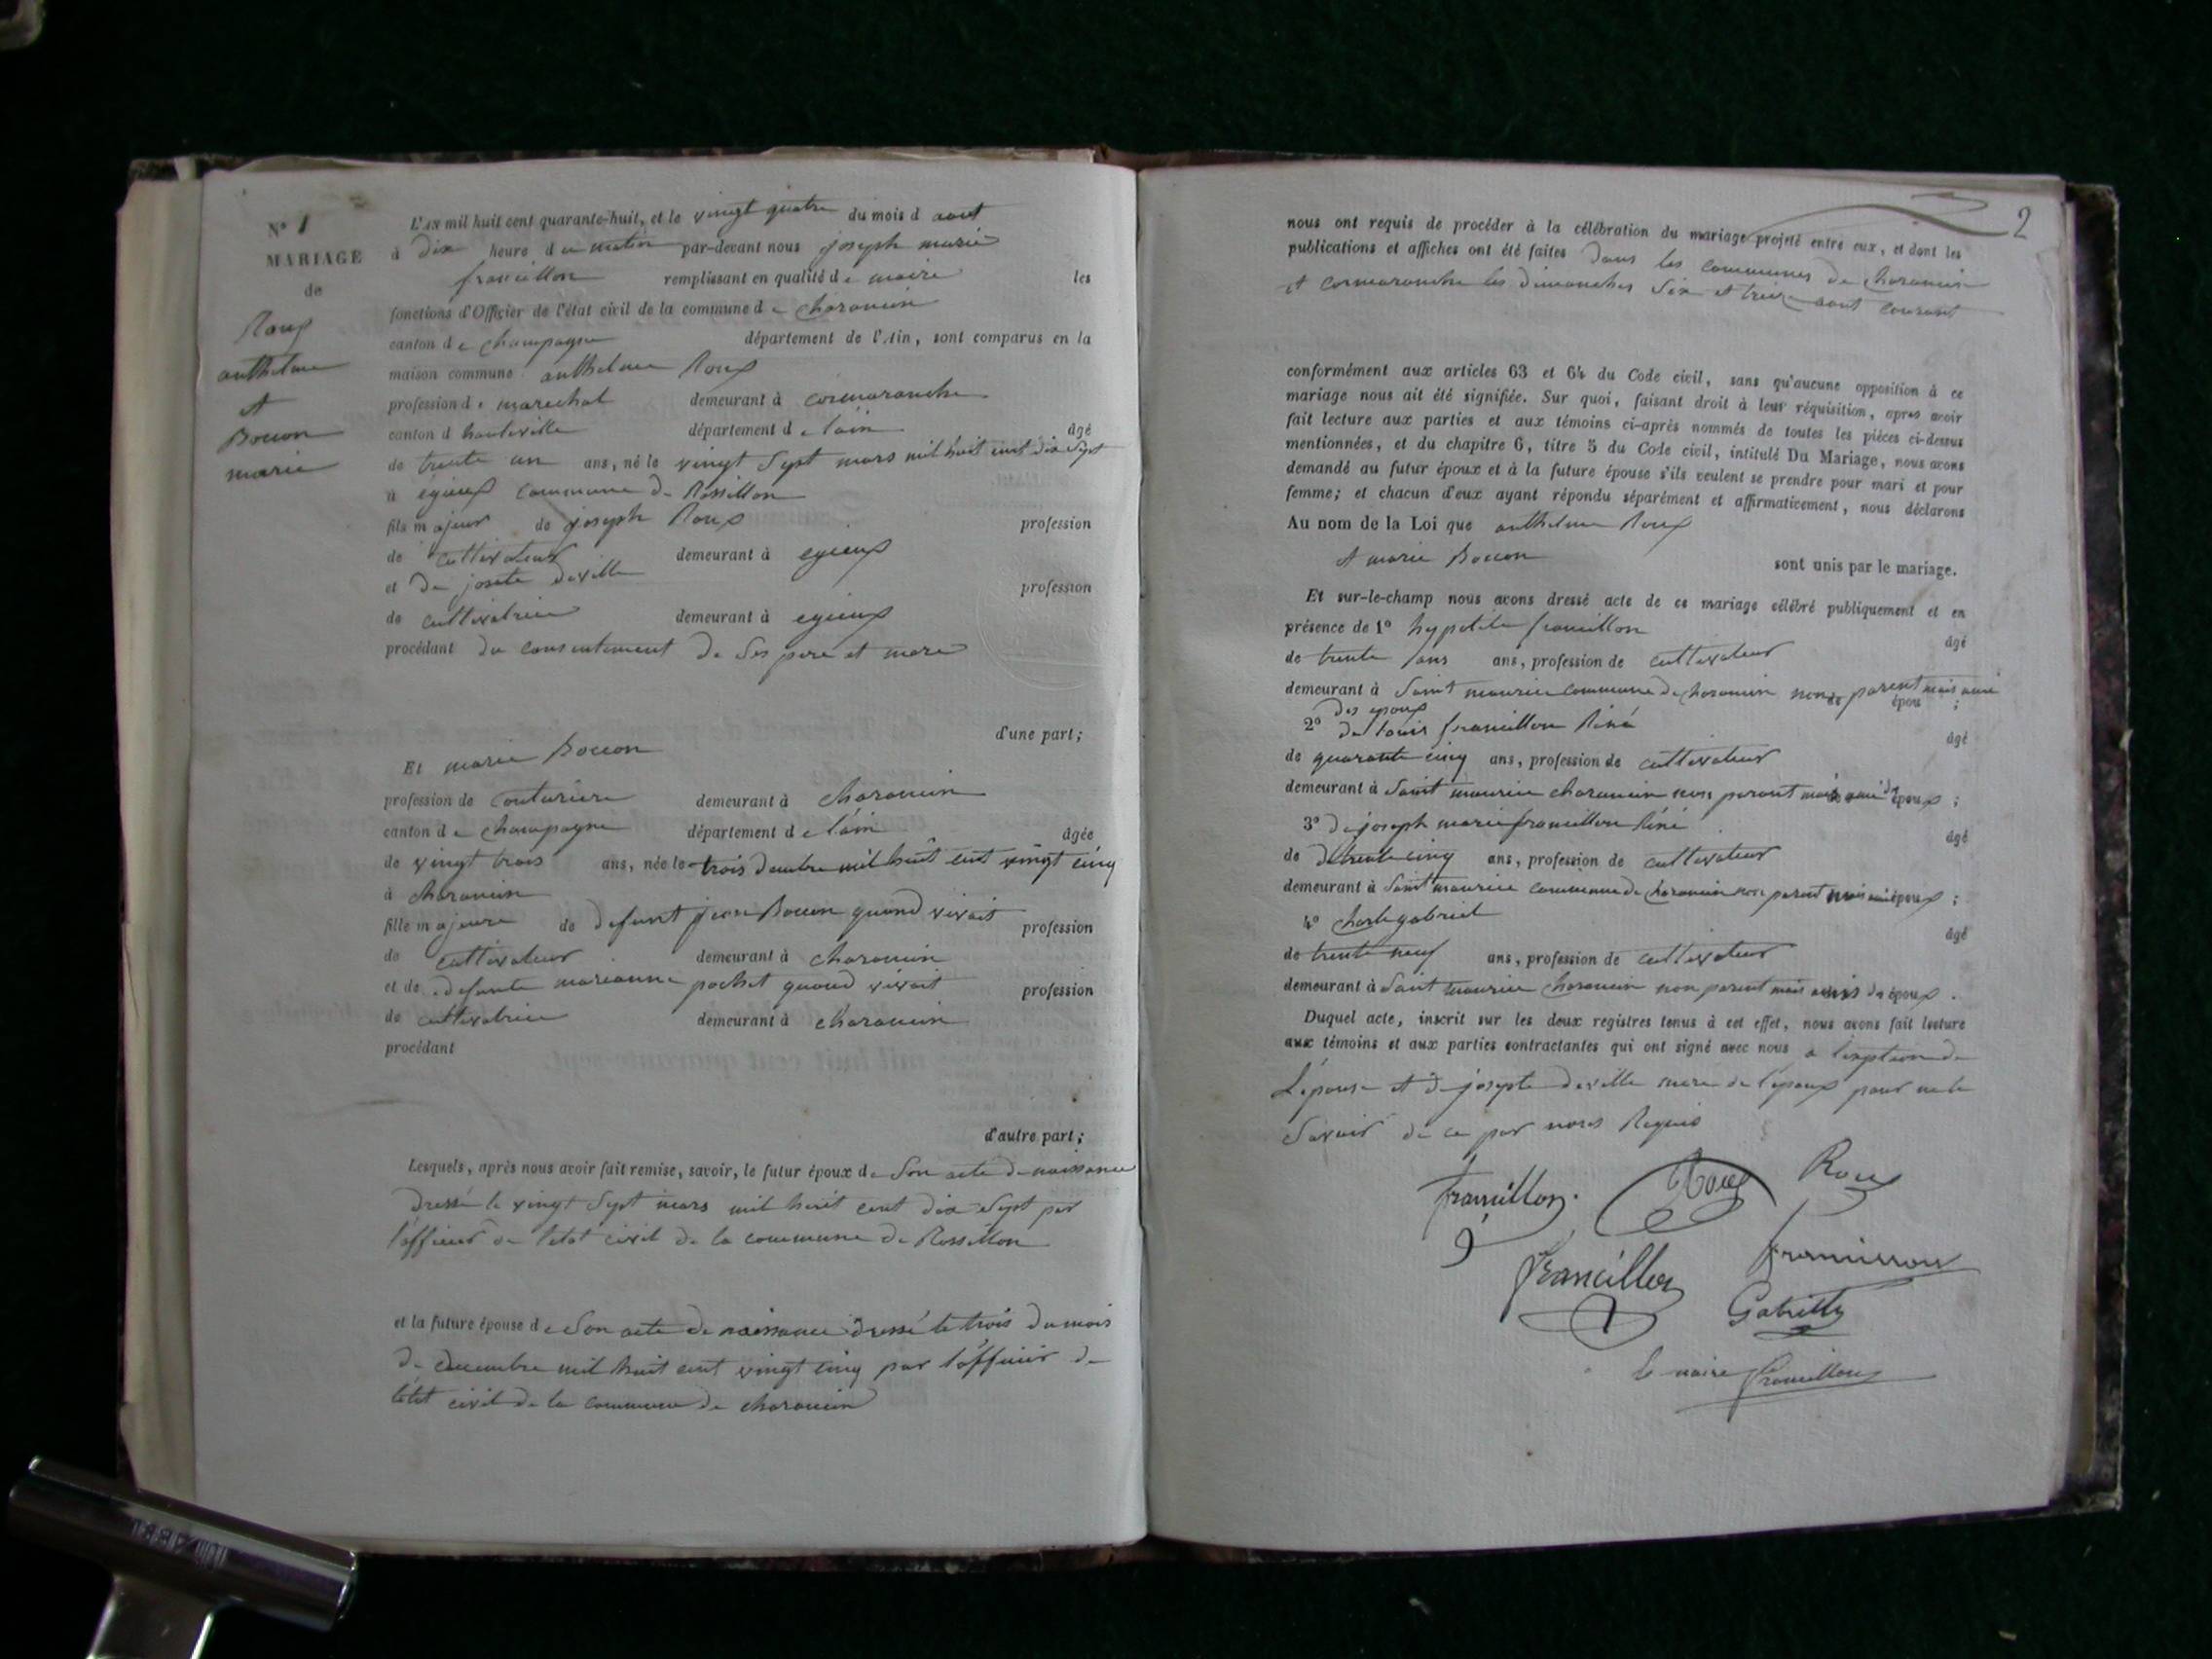 N° 1
MARIAGE
de
Roux
anthelme
et
Bouon
marie
L'AN mil huit cent quarante-huit, et le vingt quatre du mois d aout
à dix heure d u matin par-devant nous joseph marie
francillon remplissant en qualité d e maire les
fonctions d'Officier de l'état civil de la commune d e charancin
canton d e champagne département de l'Ain, sont comparus en la
maison commune anthelme Roux
profession d e marechal demeurant à cormaranche
canton d hauteville département d e l'ain âgé
de trente un ans, né le vingt Sept mars mil huit cent dix Sept
à égieux commune de Rossillon
fils majeur de joseph Roux profession
de cultivateur demeurant à egieux
et de josete deville profession
de cultivatrice demeurant à egieux
procédant du consentement de Ses pere et mere
d'une part;
Et marie Bouon
profession de couturière demeurant à charancin
canton d e champagne département d e l'ain âgée
de vingt trois ans, née le trois decembre mil huit cent vingt cinq
à charancin
fille majeure de defunt jean Bouon quand vivait profession
de cultivateur demeurant à charancin
et de defunte marianne pochet quand vivait profession
de cultivatrice demeurant à charancin
procédant
d'autre part;
Lesquels, après nous avoir fait remise, savoir, le futur époux de Son acte de naissance
dressé le vingt Sept mars mil huit cent dix Sept par
l'officier de l'etat civil de la commune de Rossillon
et la future épouse d e Son acte de naissance dressé le trois du mois
de decembre mil huit cent vingt cinq par l'officier de
l'etat civil de la commune de charancin
2
nous ont requis de procéder à la célébration du mariage projeté entre eux, et dont les
publications et affiches ont été faites dans les communes de charancin
et cormaranche les dimanches Six et treize aout courant
conformément aux articles 63 et 64 du Code civil, sans qu'aucune opposition à ce
mariage nous ait été signifiée. Sur quoi, faisant droit à leur réquisition, apres avoir
fait lecture aux parties et aux témoins ci-après nommés de toutes les pièces ci-dessus
mentionnées, et du chapitre 6, titre 5 du Code civil, intitulé Du Mariage, nous avons
demandé au futur époux et à la future épouse s'ils veulent se prendre pour mari et pour
femme; et chacun d'eux ayant répondu séparément et affirmativement, nous déclarons
Au nom de la Loi que anthelme Roux
et marie Bouon sont unis par le mariage.
Et sur-le-champ nous avons dressé acte de ce mariage célébré publiquement et en
présence de 1° hypolite francillon âgé
de trente ans ans, profession de cultivateur
demeurant à Saint maurice commune de charancin non parent mais ami
des epoux épou ;
2° de louis francillon Réné âgé
de quarante cinq ans, profession de cultivateur
demeurant à Saint maurice charancin non parent mais ami d époux ;
3° de joseph marie francillon Réné âgé
de trente cinq ans, profession de cultivateur
demeurant à Saint maurice commune de charancin non parent mais ami époux ;
4° charle gabriel âgé
de trente neuf ans, profession de cultivateur
demeurant à Saint maurice charancin non parent mais amis de époux .
Duquel acte, inscrit sur les deux registres tenus à cet effet, nous avons fait lecture
aux témoins et aux parties contractantes qui ont signé avec nous a l'exption de
L'épouse et de josepte deville mere de l'epoux pour ne le
Savoir de ce par nous Requis
francillon Roux Roux
francillon
Gabriel
le maire francillon